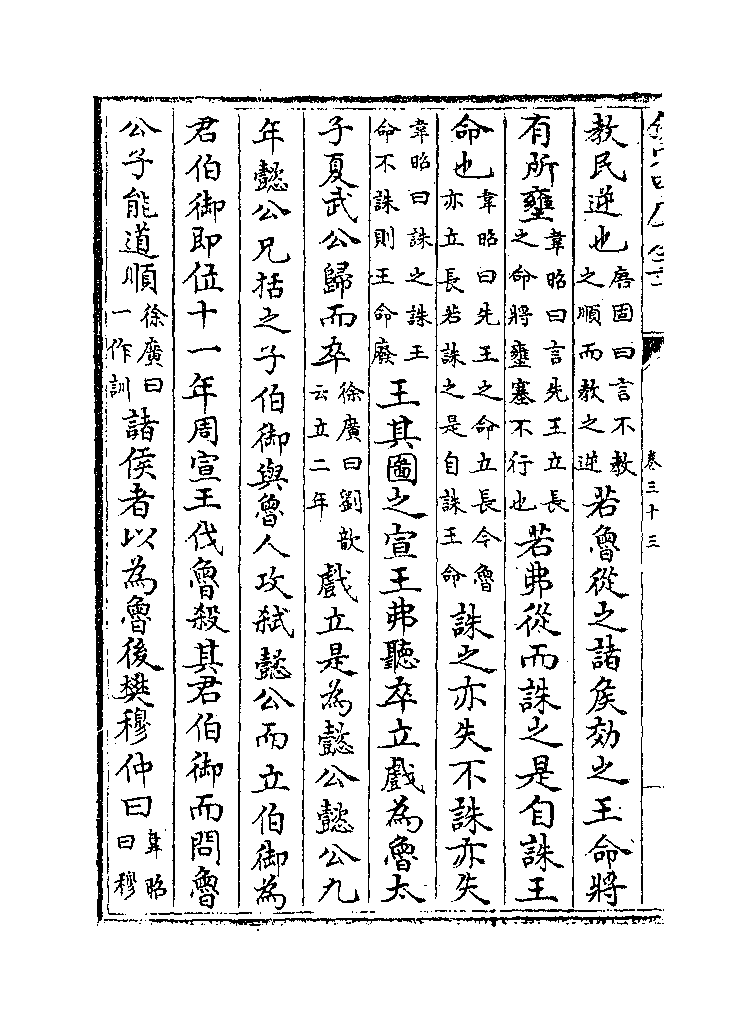 卷三十三
教民逆也唐固曰言不教之順而教之逆若魯從之諸侯効之王命將
有所壅韋昭曰言先王立長之命將壅塞不行也若弗從而誅之是自誅王
命也韋昭曰先王之命立長今魯亦立長若誅之是自誅王命誅之亦失不誅亦失
韋昭曰誅之誅王命不誅則王命廢王其圖之宣王弗聽卒立戲為魯太
子夏武公歸而卒徐廣曰劉歆云立二年戲立是為懿公懿公九
年懿公兄括之子伯御與魯人攻弑懿公而立伯御為
君伯御即位十一年周宣王伐魯殺其君伯御而問魯
公子能道順徐廣曰一作訓諸侯者以為魯後樊穆仲曰韋昭曰穆